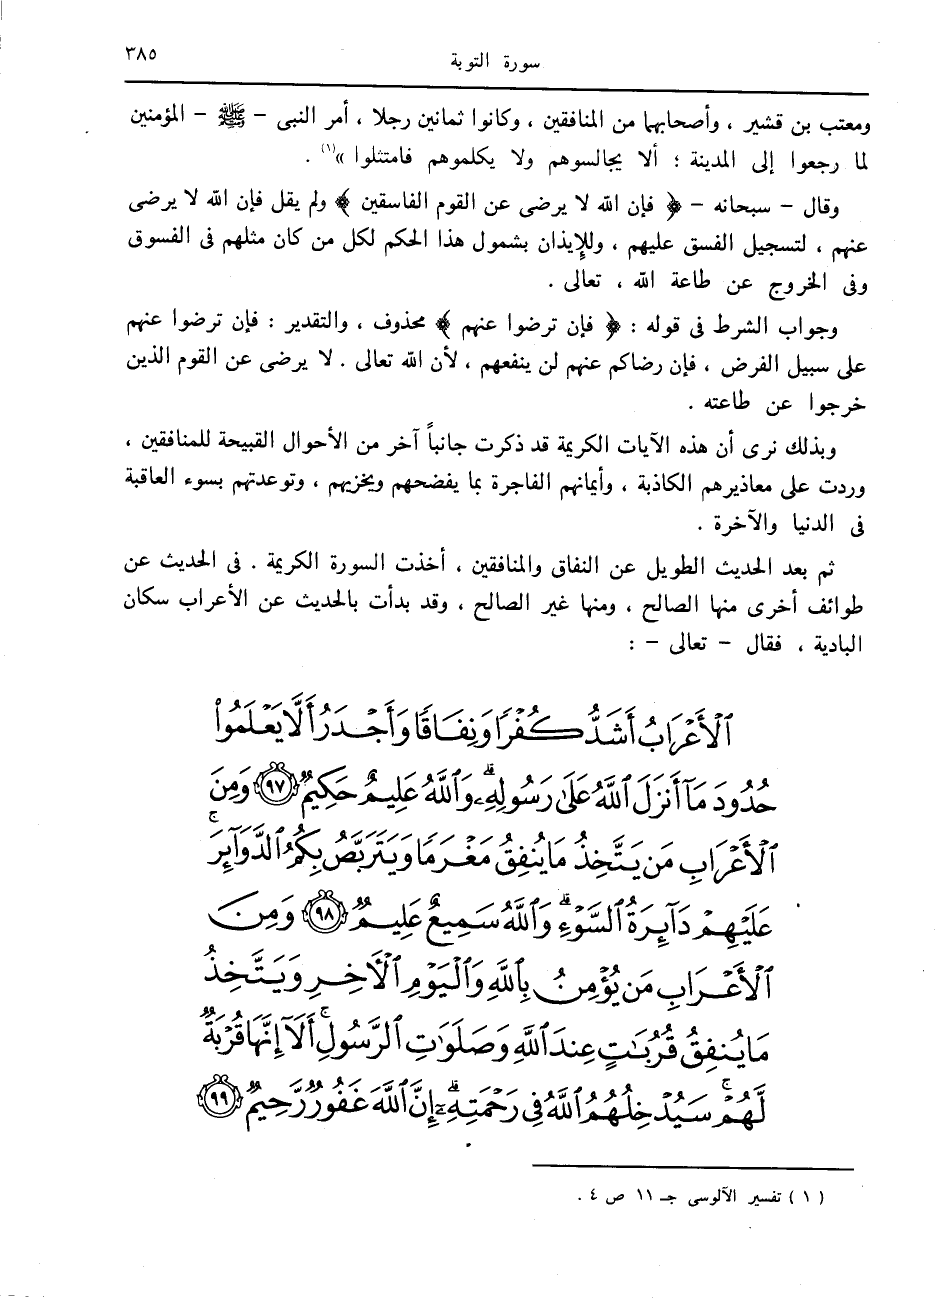 سورة التوبة
٣٨٥
ومعتب بن قشير ، وأصحابهما من المنافقين ، وكانوا ثمانين رجلا ، أمر النبى – ﷺ – المؤمنين
لما رجعوا إلى المدينة ؛ ألا يجالسوهم ولا يكلموهم فامتثلوا »(١) .
وقال – سبحانه – ﴿ فإن الله لا يرضى عن القوم الفاسقين ﴾ ولم يقل فإن الله لا يرضى
عنهم ، لتسجيل الفسق عليهم ، وللإيذان بشمول هذا الحكم لكل من كان مثلهم فى الفسوق
وفى الخروج عن طاعة الله ، تعالى .
وجواب الشرط فى قوله : ﴿ فإن ترضوا عنهم ﴾ محذوف ، والتقدير : فإن ترضوا عنهم
على سبيل الفرض ، فإن رضاكم عنهم لن ينفعهم ، لأن الله تعالى . لا يرضى عن القوم الذين
خرجوا عن طاعته .
وبذلك نرى أن هذه الآيات الكريمة قد ذكرت جانباً آخر من الأحوال القبيحة للمنافقين ،
وردت على معاذيرهم الكاذبة ، وأيمانهم الفاجرة بما يفضحهم ويخزيهم ، وتوعدتهم بسوء العاقبة
فى الدنيا والآخرة .
ثم بعد الحديث الطويل عن النفاق والمنافقين ، أخذت السورة الكريمة . فى الحديث عن
طوائف أخرى منها الصالح ، ومنها غير الصالح ، وقد بدأت بالحديث عن الأعراب سكان
البادية ، فقال – تعالى – :
ٱلْأَعْرَابُ أَشَدُّ كُفْرًا وَنِفَاقًا وَأَجْدَرُ أَلَّا يَعْلَمُوا۟
حُدُودَ مَآ أَنزَلَ ٱللَّهُ عَلَىٰ رَسُولِهِۦ ۗ وَٱللَّهُ عَلِيمٌ حَكِيمٌ ﴿٩٧﴾ وَمِنَ
ٱلْأَعْرَابِ مَن يَتَّخِذُ مَا يُنفِقُ مَغْرَمًا وَيَتَرَبَّصُ بِكُمُ ٱلدَّوَآئِرَ ۚ
عَلَيْهِمْ دَآئِرَةُ ٱلسَّوْءِ ۗ وَٱللَّهُ سَمِيعٌ عَلِيمٌ ﴿٩٨﴾ وَمِنَ
ٱلْأَعْرَابِ مَن يُؤْمِنُ بِٱللَّهِ وَٱلْيَوْمِ ٱلْآخِرِ وَيَتَّخِذُ
مَا يُنفِقُ قُرُبَٰتٍ عِندَ ٱللَّهِ وَصَلَوَٰتِ ٱلرَّسُولِ ۚ أَلَآ إِنَّهَا قُرْبَةٌ
لَّهُمْ ۚ سَيُدْخِلُهُمُ ٱللَّهُ فِى رَحْمَتِهِۦٓ ۗ إِنَّ ٱللَّهَ غَفُورٌ رَّحِيمٌ ﴿٩٩﴾
( ١ ) تفسير الآلوسى جـ ١١ ص ٤ .